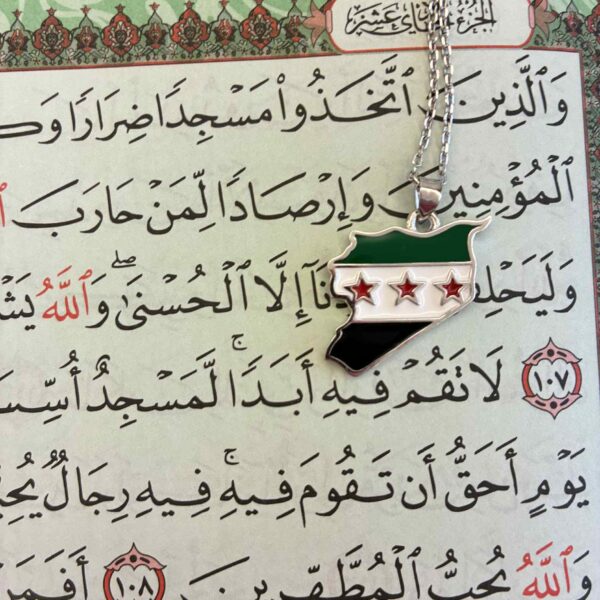 الجزء عشر
وَٱلَّذِينَ ٱتَّخَذُوا۟ مَسْجِدًا ضِرَارًا
ٱلْمُؤْمِنِينَ وَإِرْصَادًا لِّمَنْ حَارَبَ
إِلَّا ٱلْحُسْنَىٰ ۖ وَٱللَّهُ
١٠٧ لَا تَقُمْ فِيهِ أَبَدًا ۚ لَّمَسْجِدٌ
يَوْمٍ أَحَقُّ أَن تَقُومَ فِيهِ ۚ فِيهِ رِجَالٌ
وَٱللَّهُ يُحِبُّ ٱلْمُطَّهِّرِينَ ١٠٨